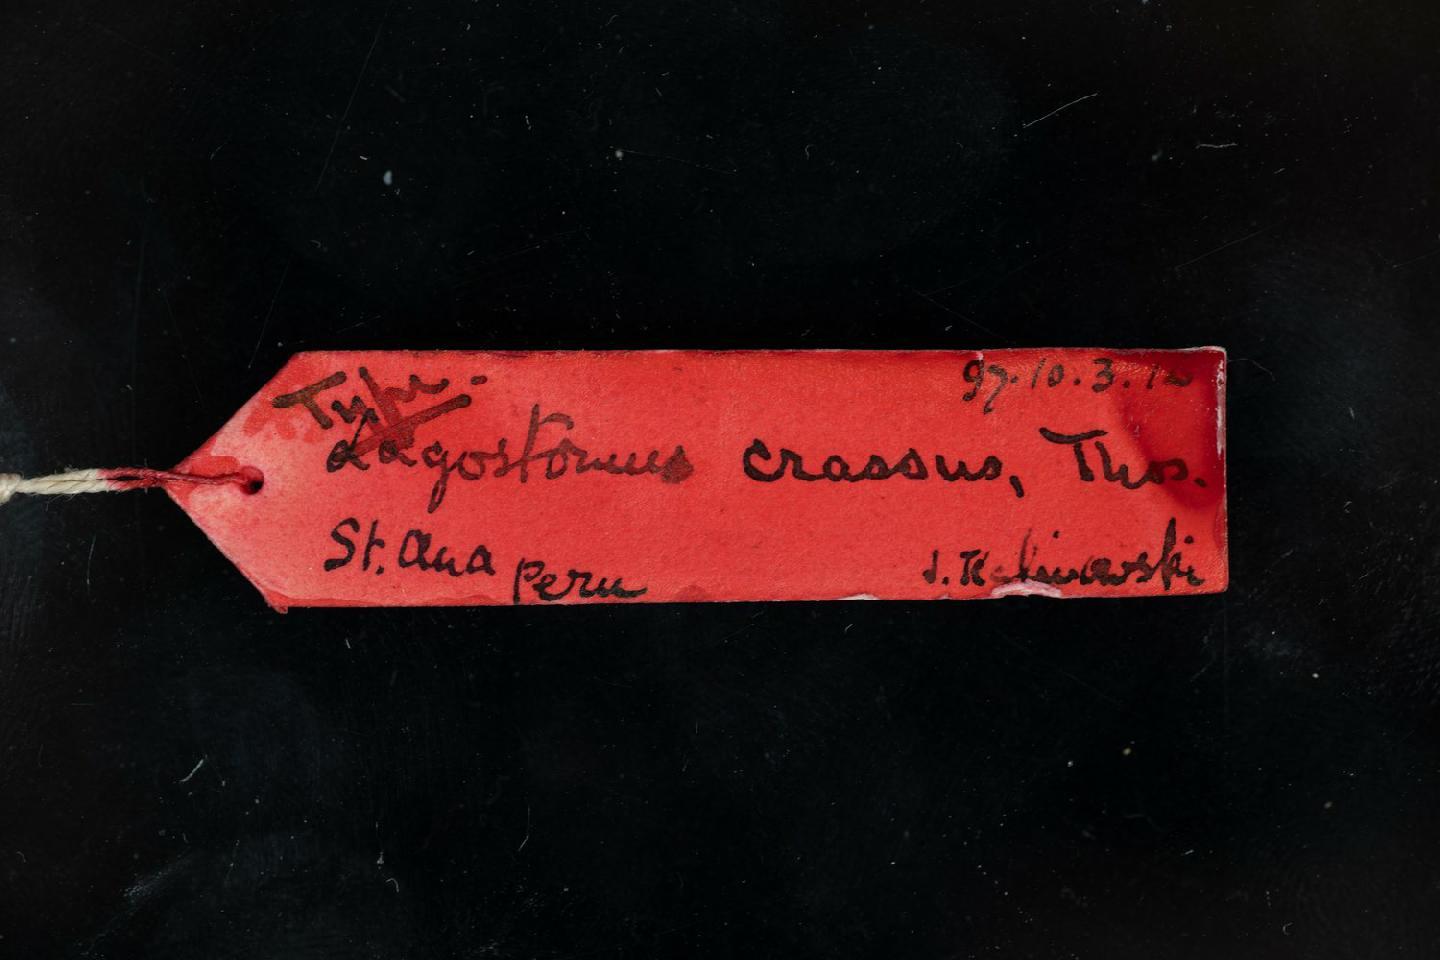 Type.
97.10.3.12
Lagostomus crassus, Thos.
St. Ana Peru
J. Kalinowski